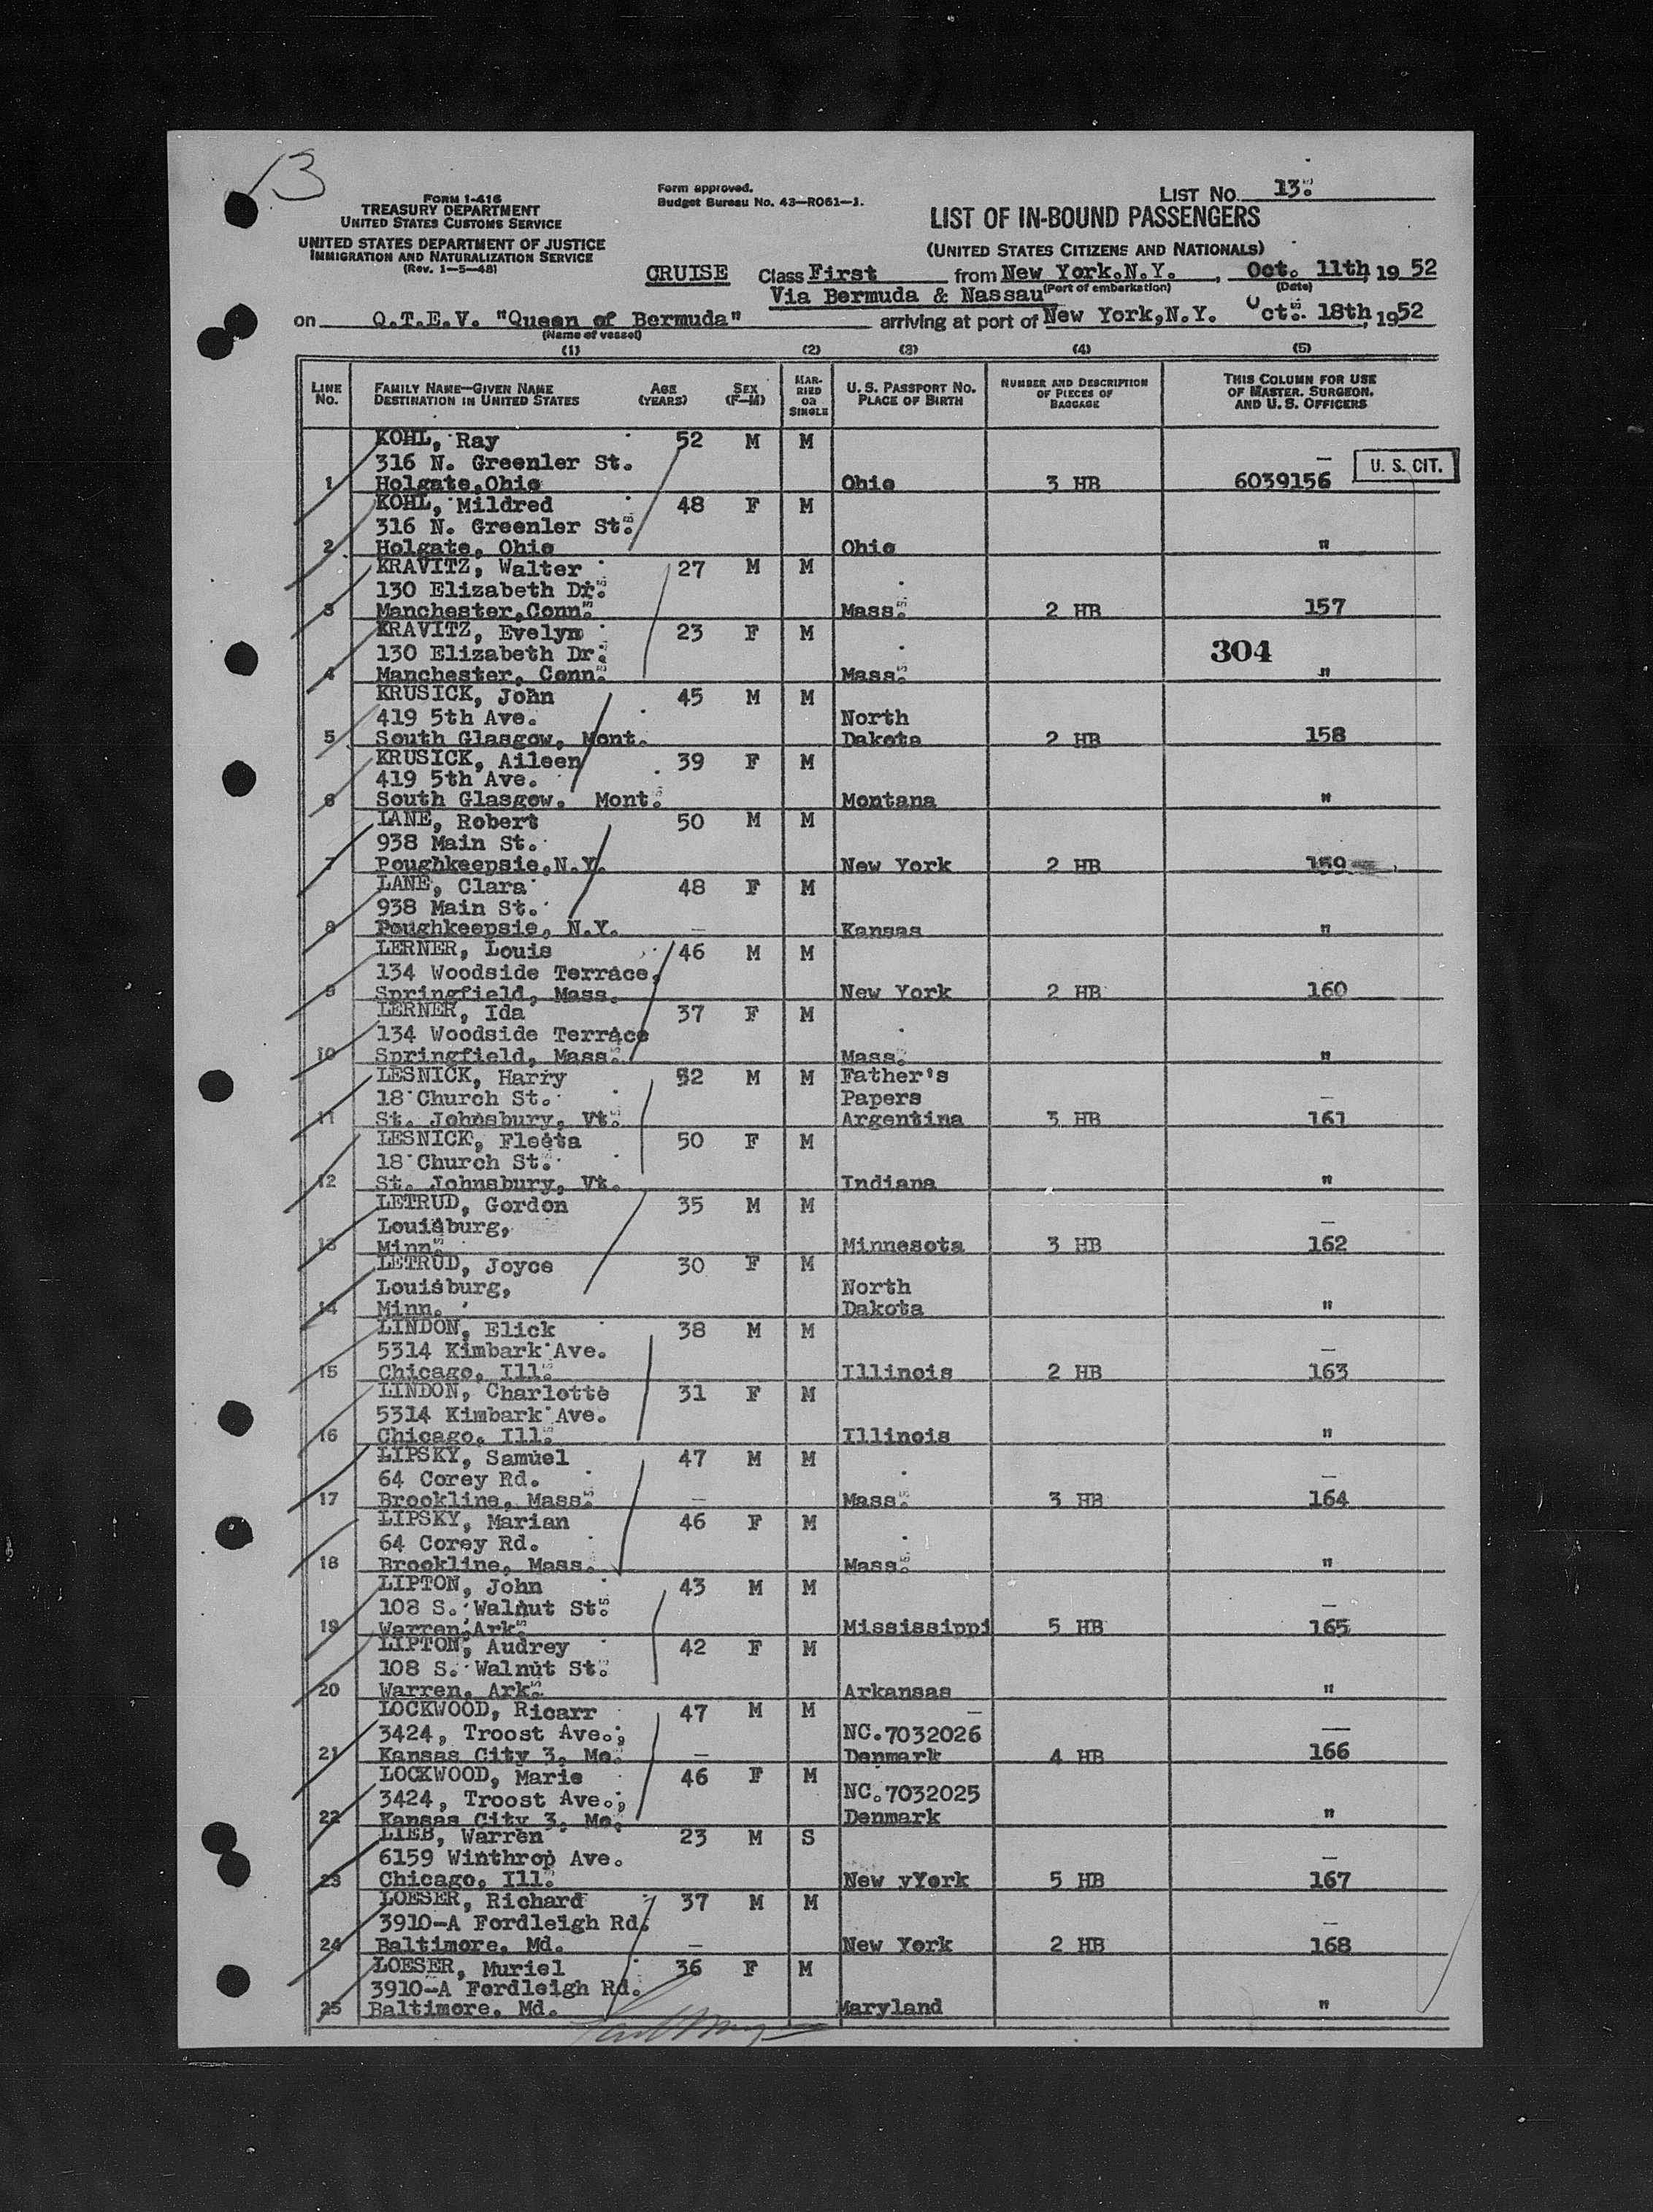 13
FORM I-416
TREASURY DEPARTMENT
UNITED STATES CUSTOMS SERVICE
UNITED STATES DEPARTMENT OF JUSTICE
IMMIGRATION AND NATURALIZATION SERVICE
(Rev. 1-5-48)
Form approved.
Budget Bureau No. 43-R061-1.
LIST NO. 13.
LIST OF IN-BOUND PASSENGERS
(UNITED STATES CITIZENS AND NATIONALS)
CRUISE Class First from New York.N.Y., Oct. 11th, 19 52
(Port of embarkation) (Date)
Via Bermuda & Nassau
on Q.T.E.V. "Queen of Bermuda" arriving at port of New York,N.Y. Oct. 18th, 1952
(Name of vessel)
(1) (2) (3) (4) (5)
LINE NO. FAMILY NAME—GIVEN NAME DESTINATION IN UNITED STATES AGE (YEARS) SEX (F—M) MARRIED OR SINGLE U. S. PASSPORT NO. PLACE OF BIRTH NUMBER AND DESCRIPTION OF PIECES OF BAGGAGE THIS COLUMN FOR USE OF MASTER, SURGEON, AND U. S. OFFICERS
KOHL, Ray 52 M M
316 N. Greenler St. U. S. CIT.
1 Holgate,Ohio Ohio 3 HB 6039156
KOHL, Mildred 48 F M
316 N. Greenler St.
2 Holgate, Ohio Ohio "
KRAVITZ, Walter 27 M M
130 Elizabeth Dr.
3 Manchester,Conn. Mass. 2 HB 157
KRAVITZ, Evelyn 23 F M
130 Elizabeth Dr. 304
4 Manchester, Conn. Mass. "
KRUSICK, John 45 M M
419 5th Ave. North
5 South Glasgow, Mont. Dakota 2 HB 158
KRUSICK, Aileen 39 F M
419 5th Ave.
6 South Glasgow. Mont. Montana "
LANE, Robert 50 M M
938 Main St.
7 Poughkeepsie,N.Y. New York 2 HB 159
LANE, Clara 48 F M
938 Main St.
8 Poughkeepsie, N.Y. Kansas "
LERNER, Louis 46 M M
134 Woodside Terrace,
9 Springfield, Mass. New York 2 HB 160
LERNER, Ida 37 F M
134 Woodside Terrace
10 Springfield, Mass. Mass. "
LESNICK, Harry 52 M M Father's
18 Church St. Papers
11 St. Johnsbury, Vt. Argentina 3 HB 161
LESNICK, Fleeta 50 F M
18 Church St.
12 St. Johnsbury, Vt. Indiana "
LETRUD, Gordon 35 M M
Louisburg,
13 Minn. Minnesota 3 HB 162
LETRUD, Joyce 30 F M
Louisburg, North
14 Minn. Dakota "
LINDON, Elick 38 M M
5314 Kimbark Ave.
15 Chicago, Ill. Illinois 2 HB 163
LINDON, Charlotte 31 F M
5314 Kimbark Ave.
16 Chicago, Ill. Illinois "
LIPSKY, Samuel 47 M M
64 Corey Rd.
17 Brookline, Mass. Mass. 3 HB 164
LIPSKY, Marian 46 F M
64 Corey Rd.
18 Brookline, Mass. Mass. "
LIPTON, John 43 M M
108 S. Walnut St.
19 Warren,Ark. Mississippi 5 HB 165
LIPTON, Audrey 42 F M
108 S. Walnut St.
20 Warren, Ark. Arkansas "
LOCKWOOD, Ricarr 47 M M
3424, Troost Ave., NC.7032026
21 Kansas City 3, Mo. Denmark 4 HB 166
LOCKWOOD, Marie 46 F M
3424, Troost Ave., NC.7032025
22 Kansas City 3, Mo. Denmark "
LIEB, Warren 23 M S
6159 Winthrop Ave.
23 Chicago, Ill. New yYork 5 HB 167
LOESER, Richard 37 M M
3910-A Fordleigh Rd.
24 Baltimore, Md. New York 2 HB 168
LOESER, Muriel 36 F M
3910-A Fordleigh Rd.
25 Baltimore, Md. Maryland "